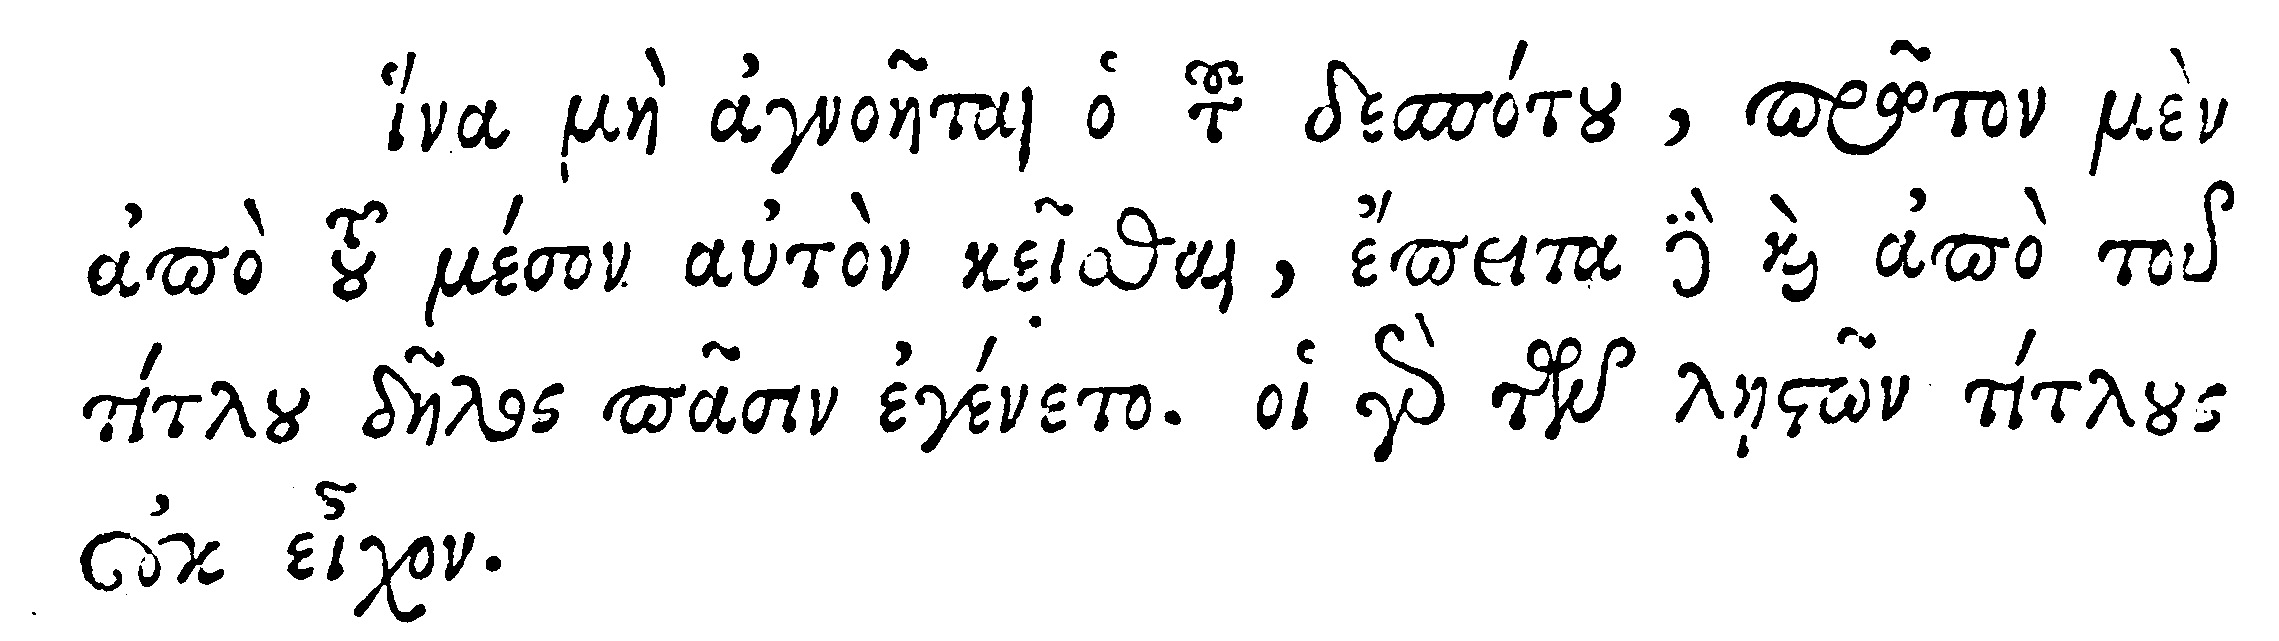 ἵνα μὴ ἀγνοῆται ὁ τοῦ δεσπότου, πρῶτον μὲν
ἀπὸ τοῦ μέσον αὐτὸν κεῖσθαι, ἔπειτα δὲ καὶ ἀπὸ τοῦ
τίτλου δῆλος πᾶσιν ἐγένετο. οἱ γὰρ τῶν λῃστῶν τίτλους
οὐκ εἶχον.